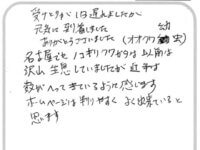 受けとりは遅れましたが
元気に到着しました
ありがとうございました (オオクワ幼虫)
名古屋でもノコギリクワガタは以前は
沢山生息していましたが近年は
数がへってきているように感じます
ホームページは判りやすくよく出来ていると
思います